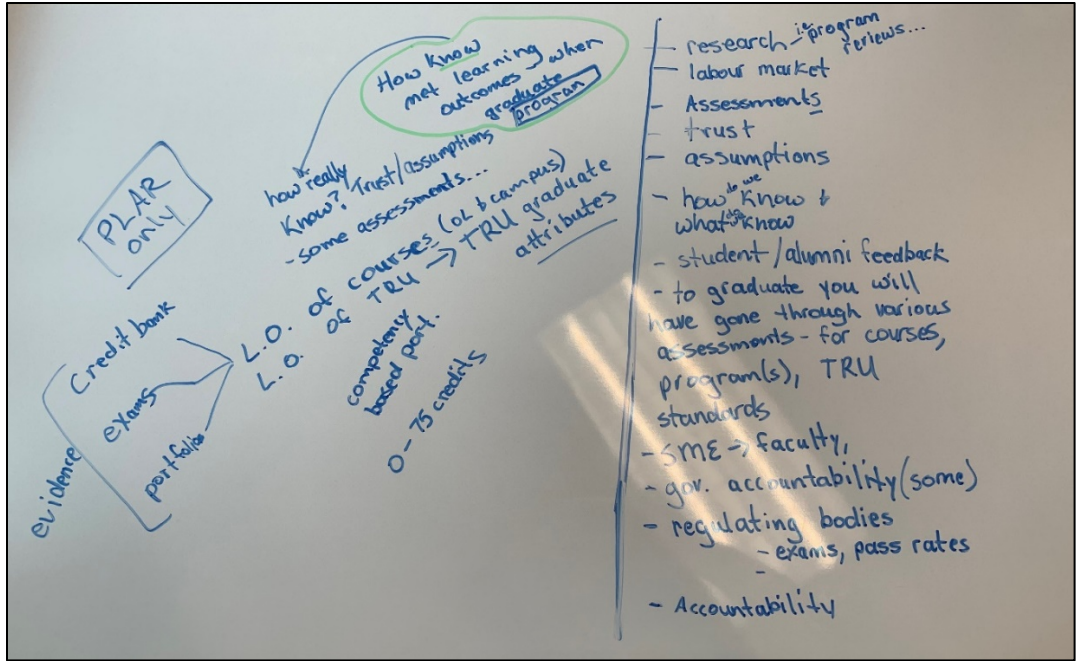 How know
met learning
outcomes when
graduate
program
how really
know? Trust/assumptions
- some assessments...
PLAR
only
L.O. of courses (OL & campus)
L.O. of TRU → TRU graduate
attributes
competency
based port.
0-75 credits
Credit bank
exams
portfolios
evidence
- research - i.e program
reviews...
- labour market
- Assessments
- trust
- assumptions
- how do we know &
what do we know
- student/alumni feedback
- to graduate you will
have gone through various
assessments - for courses,
program(s), TRU
standards
- SME → faculty,
- gov. accountability (some)
- regulating bodies
- exams, pass rates
-
- Accountability